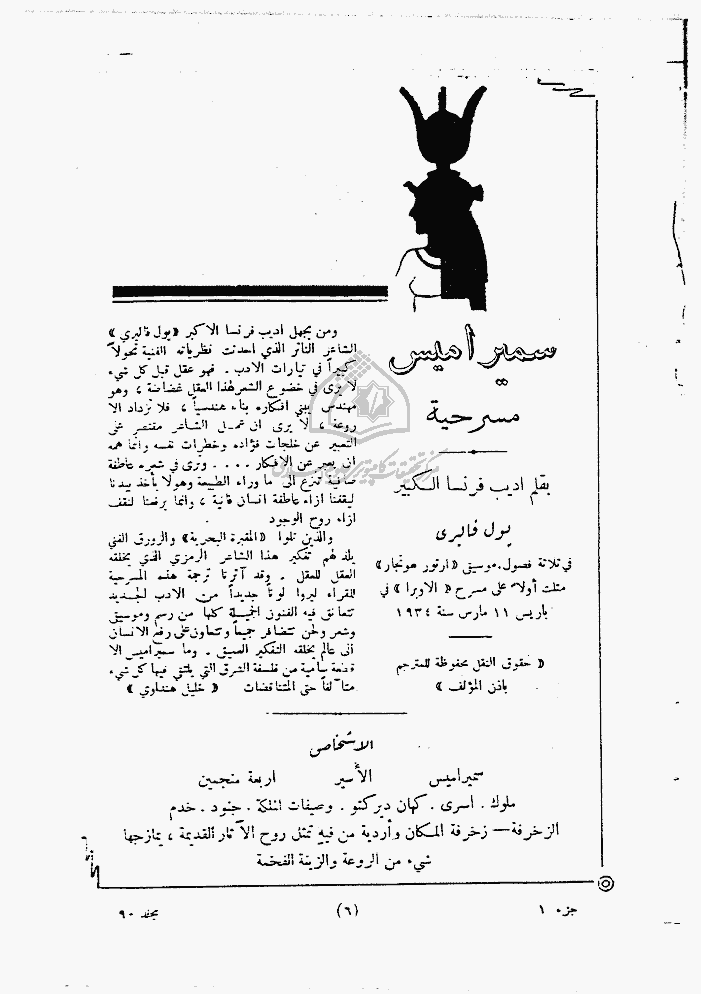 سميراميس
مسرحية
بقلم اديب فرنسا الكبير
پول فاليري
في ثلاثة فصول. موسيقى «ارتور هونجار»
مثلت أولاً على مسرح «الاوبرا» في
باريس ١١ مارس سنة ١٩٣٤
« حقوق النقل محفوظة للمترجم
باذن المؤلف »
ومن يجهل اديب فرنسا الاكبر «پول فاليري»
الشاعر الناثر الذي احدثت نظرياته الفنية تحولاً
كبيراً في تيارات الادب . فهو عقل قبل كل شيء
لا يرى في خضوع الشعر لهذا العقل غضاضة ، وهو
مهندس يبني افكاره بناء هندسياً ، فلا تزداد الا
روعة ، لا يرى ان عمل الشاعر مقتصر على
التعبير عن خلجات فؤاده وخطرات نفسه وانما همه
ان يعبر عن الافكار .... وترى في شعره عاطفة
صافية تنزع الى ما وراء الطبيعة وهو لا يأخذ بيدنا
ليقفنا ازاء عاطفة انسان فانية ، وانما يرفعنا لنقف
ازاء روح الوجود .
والذين تلوا «المقبرة البحرية» والزورق الفني
يلذ لهم تفكير هذا الشاعر الرمزي الذي يخلقه
العقل للعقل . وقد آثرنا ترجمة هذه المسرحية
للقراء ليروا لوناً جديداً من الادب الجديد
تتعانق فيه الفنون الجميلة كلها من رسم وموسيقى
وشعر ولحن تتضافر جميعاً وتتعاون على رفع الانسان
الى عالم يخلقه التفكير العميق . وما سميراميس الا
قطعة سامية من فلسفة الشرق التي يلتقي فيها كل شيء
متآلفاً حتى المتناقضات « خليل هنداوي »
الاشخاص
سميراميس الأسير اربعة منجمين
ملوك . اسرى . كهان ديركتو . وصيفات الملكة . جنود . خدم
الزخرفة — زخرفة المكان وأردية من فيه تمثل روح الآثار القديمة ، يمازجها
شيء من الروعة والزينة الفخمة
جزء ١ (٦) مجلد ٩٠